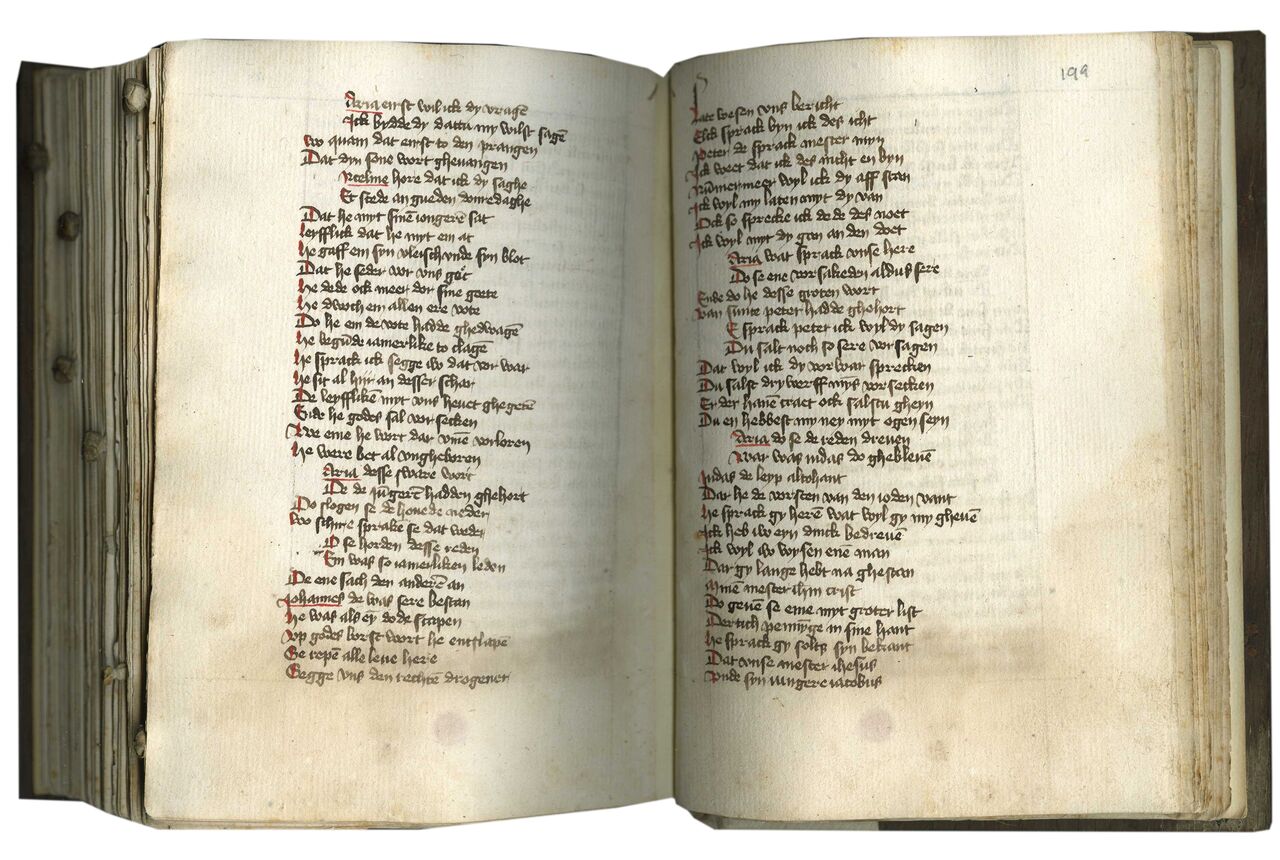 Aria erst wil ick dy vragē
Ick bydde dy dattu my wilst sagē
wo quam dat erst to den prangen
Dat dyn sone wort ghevangen
Ancelme hore dat ick dy saghe
Et schede an gueden donredaghe
Dat he myt sinē iongerē sat
leyfflick dat he myt em at
he gaff em syn vleisch vnde syn blot
Dat he seder vor vns got
he dede ock meer dor sine goete
he dwoch em allen ere vote
Do he em de vote hadde ghedwagē
he begūde iamerlike to clagē
he sprack ick segge iw dat vor war
he sit al hiir an desser schar
De leyfflikē myt vns hevet ghegetē
Eide he godes sal vor secken
We eme he wort dar vmē vorloren
he were bet al vngheboren
Aria desse sware wort
De de iūgerē hadden ghehort
Do slogen se de hovede neder
wo schire sprake se dat weder
O se horden desse reden
En was so iamerliken leden
De ene sach den anderē an
Johannes de was sere bestan
he was als eȳ dode scapen
vp godes borst wort he entslapē
Se repē alle leue here
Segge vns den rechtē drogener
199
Late wesen vns bericht
Elck sprack byn ick des icht
Peter de sprack mester myn
Ick weet dat ick des nicht en byn
Nūmermeer wyl ick dy aff stan
Ick wyl my laten myt dy van
Ock so sprecke ick dede des noet
Ick wyl myt dy gan an den doet
Aria wat sprack vnse here
Do se ene vorsakeden aldus sere
Ende do he desse groten wort
van sunte peter hadde ghehort
E sprack peter ick wyl dy sagen
Du salt noch so sere vorsagen
Dat wyl ick dy vorwar sprecken
Du salst dry werff mys vorsecken
Er der hanē craet ock salstu gheyn
Du en hebbest my ney myt ogen seyn
Aria do se de reden dreven
war was iudas do ghebleuē
Judas de leyp altohant
Dar he de vorsten van den ioden vant
he sprack gy herē wat wyl gy my gheuē
Ick heb iw eyn dinck bedreuē
Ick wyl iw wysen enē man
Dar gy lange hebt na ghestan
Minē mester ihm crist
Do geuē se eme myt groter list
Dertich pennȳge in sine hant
he sprack gy solts syn bekant
Dat vnse mester ihesus
vnde syn iungere iacobus